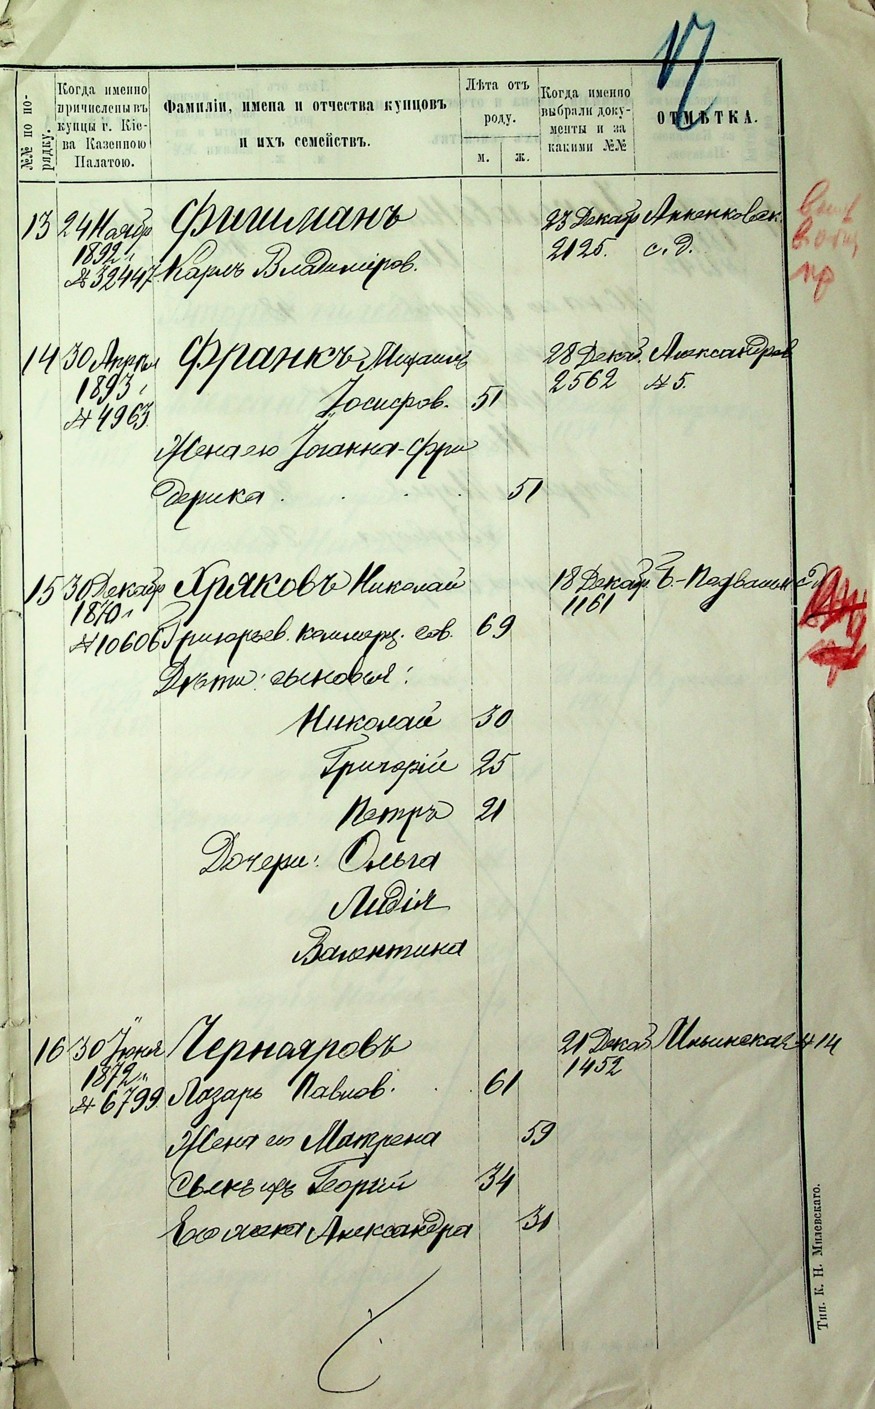 17
№№ по по-
рядку.
Когда именно
причислены въ
купцы г. Кіе-
ва Казенною
Палатою.
Фамиліи, имена и отчества купцовъ
и ихъ семействъ.
Лѣта отъ
роду.
м. ж.
Когда именно
выбрали доку-
менты и за
какими №№
ОТМѢТКА.
13 24 Ноябр Фишманъ 23 Декабр Анненковск.
1892 г. 2125. с. д.
№ 32447 Карлъ Владиміров.
14 30 Апрѣл Франкъ Михаилъ 28 Декаб. Александров
1893 г. 2562 № 5.
№ 4963 Іосифов. 51
Жена его Іоганна-Фри
дерика . . . . 51
15 30 Декабр Хряковъ Николай 18 Декабр Б.-Подвальн с д
1870 г. 1161
№ 10606 Григорьев. коммерц. сов. 69
Дѣти: сыновья:
Николай 30
Григорій 25
Петръ 21
Дочери: Ольга
Лидія
Валентина
16 30 Іюня Чернояровъ 21 Декаб Ильинская № 14
1872 г. 1452
№ 6799 Лазарь Павлов. . . 61
Жена его Матрена 59
Сынъ ихъ Георгій 34
Его жена Александра 31
Тип. К. Н. Милевскаго.